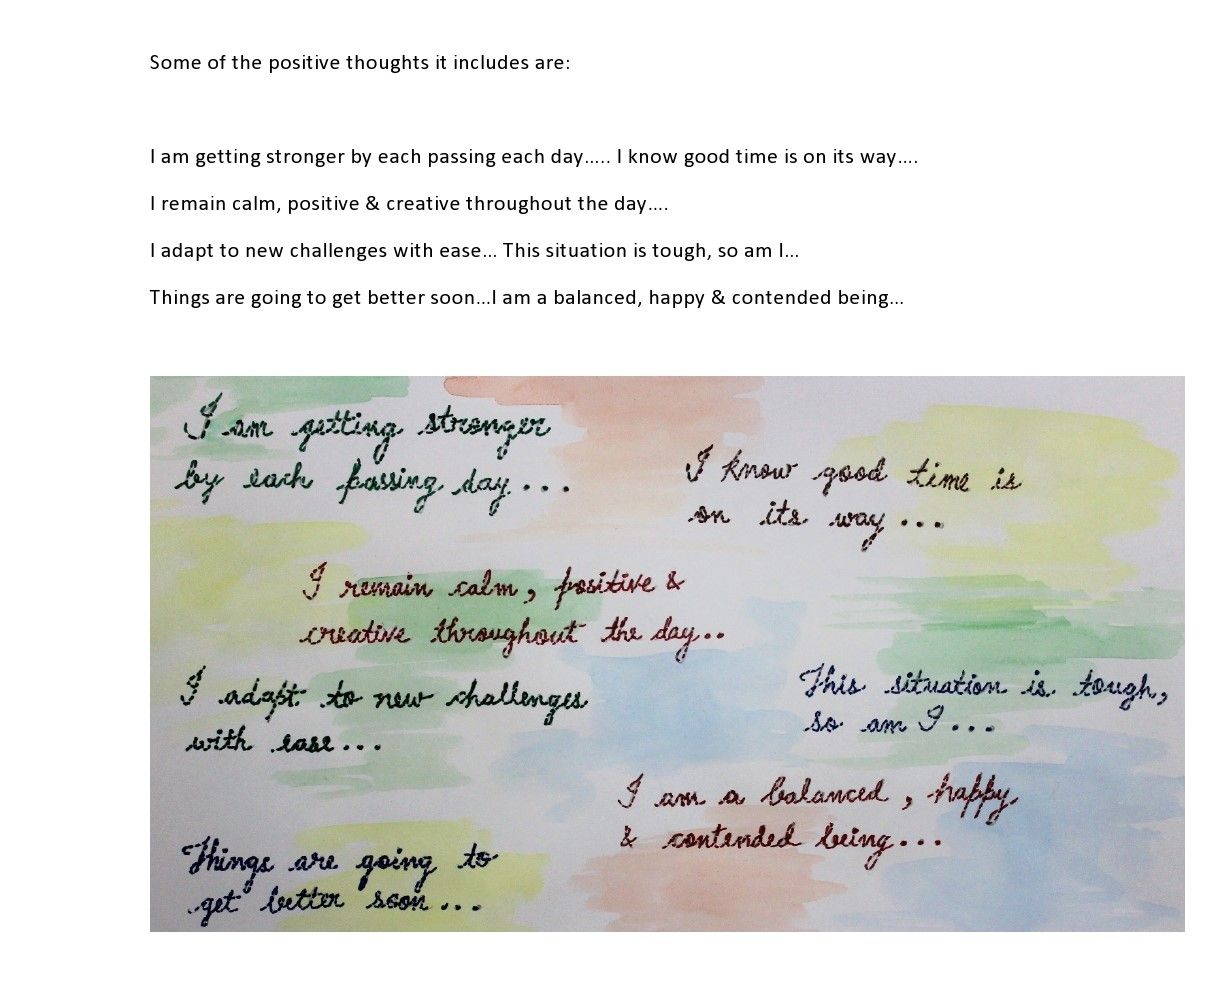 Some of the positive thoughts it includes are:
I am getting stronger by each passing each day..... I know good time is on its way....
I remain calm, positive & creative throughout the day....
I adapt to new challenges with ease... This situation is tough, so am I...
Things are going to get better soon...I am a balanced, happy & contended being...
I am getting stronger
by each passing day...
I know good time is
on its way...
I remain calm, positive &
creative throughout the day..
I adapt to new challenges
with ease...
This situation is tough,
so am I...
I am a balanced, happy
& contended being...
Things are going to
get better soon...